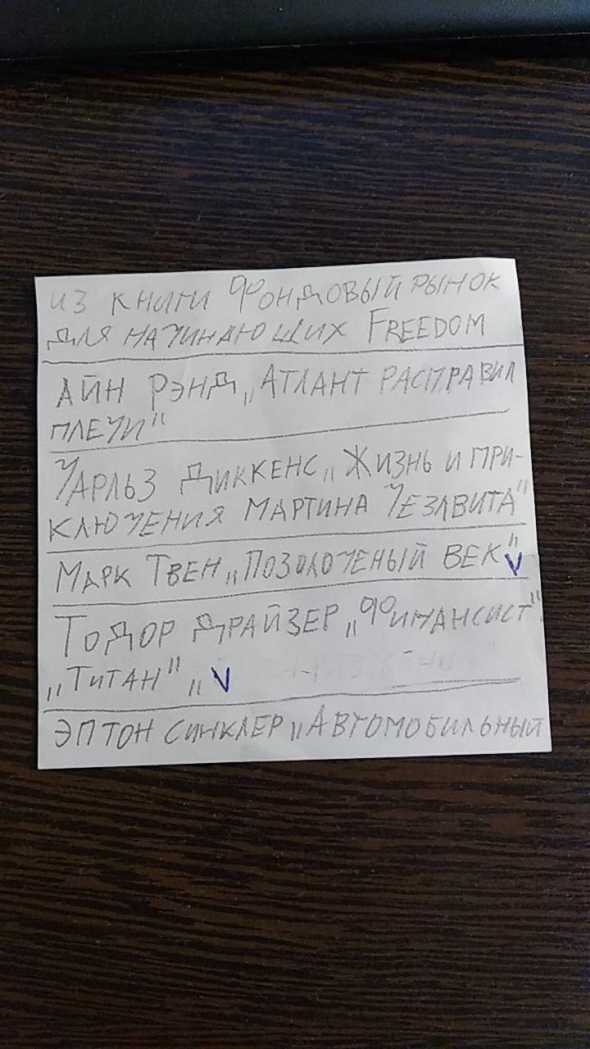 ИЗ КНИГИ ФОНДОВЫЙ РЫНОК
ДЛЯ НАЧИНАЮЩИХ FREEDOM
АЙН РЭНД „АТЛАНТ РАСПРАВИЛ
ПЛЕЧИ"
ЧАРЛЬЗ ДИККЕНС „ЖИЗНЬ И ПРИ-
КЛЮЧЕНИЯ МАРТИНА ЧЕЗЛВИТА"
МАРК ТВЕН „ПОЗОЛОЧЕНЫЙ ВЕК" V
ТОДОР ДРАЙЗЕР „ФИНАНСИСТ"
„ТИТАН" „ V
ЭПТОН СИНКЛЕР „АВТОМОБИЛЬНЫЙ